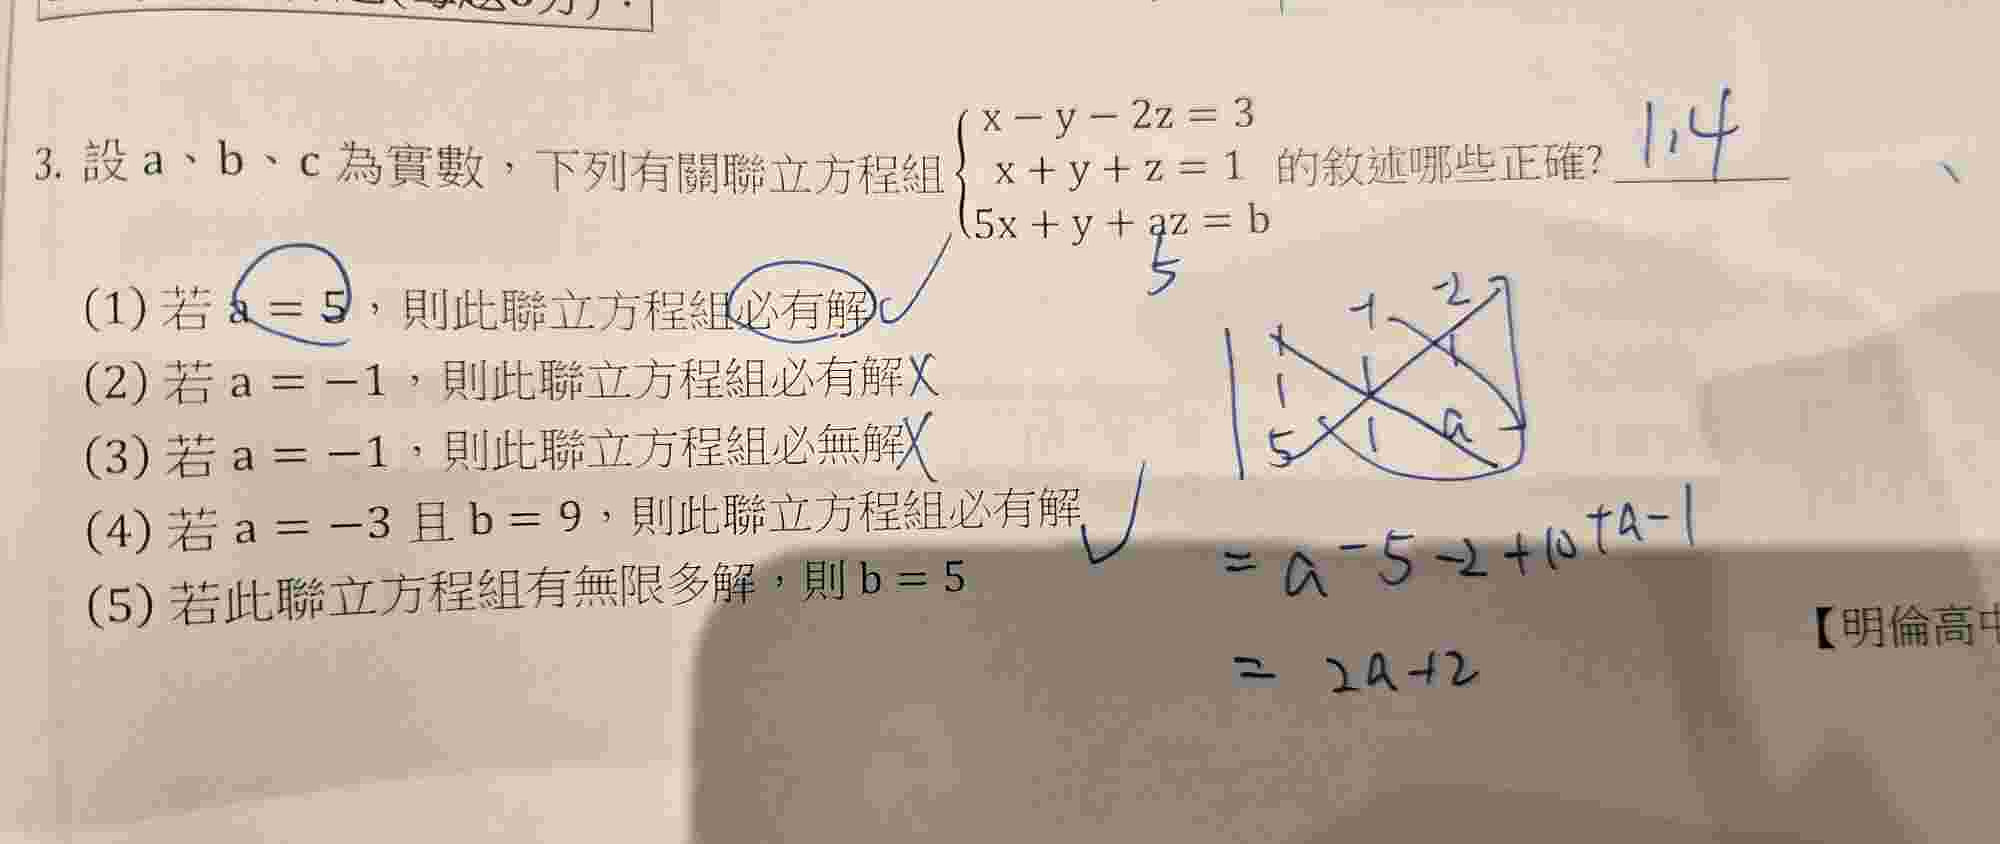 3. 設 a、b、c 為實數，下列有關聯立方程組 { x − y − 2z = 3
x + y + z = 1
5x + y + az = b 的敘述哪些正確? 1,4
5
(1) 若 a = 5，則此聯立方程組必有解 ✓
(2) 若 a = −1，則此聯立方程組必有解 X
(3) 若 a = −1，則此聯立方程組必無解 X
(4) 若 a = −3 且 b = 9，則此聯立方程組必有解 ✓
(5) 若此聯立方程組有無限多解，則 b = 5
1 -1 -2
1 1 1
5 1 a
= a - 5 - 2 + 10 + a - 1
= 2a + 2
【明倫高中